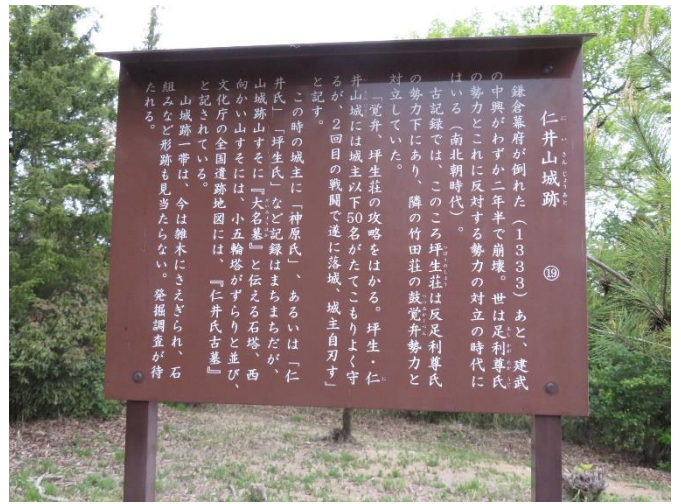 仁井山城跡 ⑲
鎌倉幕府が倒れた(1333)あと、建武
の中興がわずか二年半で崩壊。世は足利尊氏
の勢力とこれに反対する勢力の対立の時代に
はいる(南北朝時代)。
古記録では、このころ坪生荘は反足利尊氏
の勢力下にあり、隣の竹田荘の鼓覚弁勢力と
対立していた。
「覚弁、坪生荘の攻略をはかる。坪生・仁
井山城には城主以下50名がたてこもりよく守
るが、2回目の戦闘で遂に落城、城主自刃す」
と記す。
この時の城主に「神原氏」、あるいは「仁
井氏」「坪生氏」など記録はまちまちだが、
山城跡山すそに『大名墓』と伝える石塔、西
向かい山すそには、小五輪塔がずらりと並び、
文化庁の全国遺跡地図には、『仁井氏古墓』
と記されている。
山城跡一帯は、今は雑木にさえぎられ、石
組みなど形跡も見当たらない。発掘調査が待
たれる。